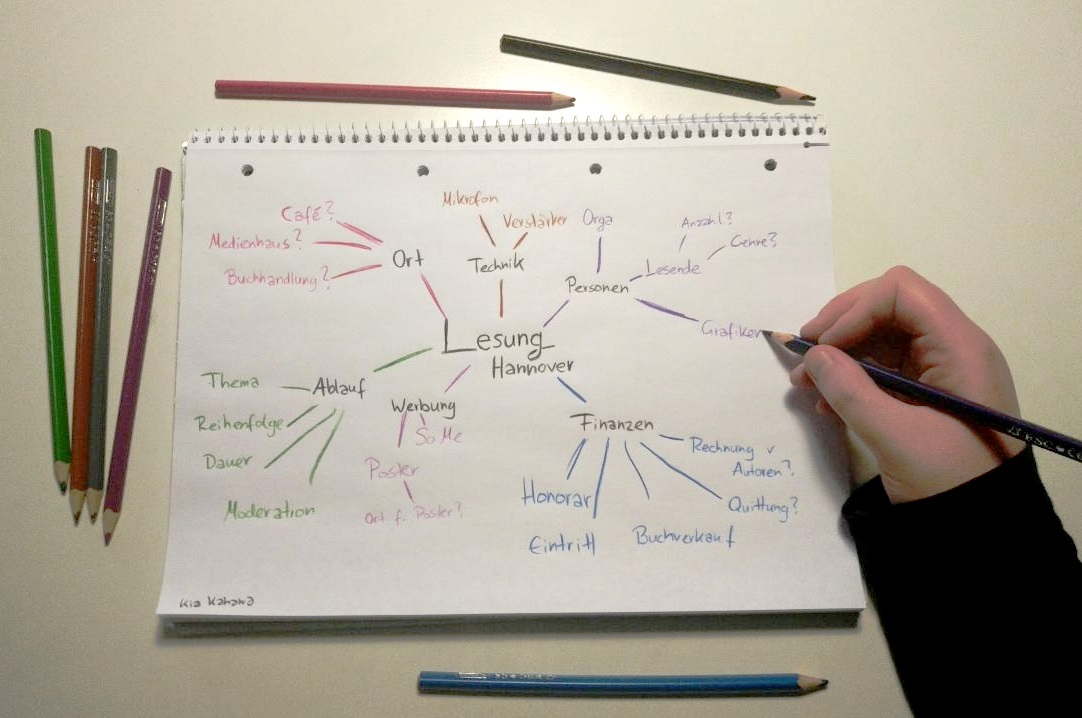 Mikrofon
Café?
Verstärker
Orga
Anzahl?
Medienhaus?
Genre?
Ort
Technik
Lesende
Buchhandlung?
Personen
Grafiker
Lesung
Hannover
Thema
Ablauf
Werbung
Reihenfolge
SoMe
Finanzen
Dauer
Poster
Rechnung v
Autoren?
Moderation
Ort f. Poster?
Honorar
Quittung?
Eintritt
Buchverkauf
Kia Kahawa